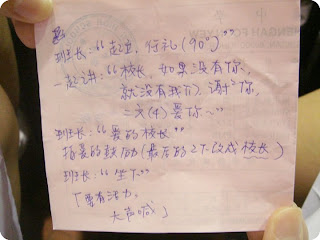 班长：“起立，行礼(90°)”
一起讲：“校长，如果没有你，
就没有我们，谢谢你，
二六(4)爱你~”
班长：“爱的校长”
指爱的鼓励(最后的2下改成校长)
班长：“坐下”
「要有活力，
大声喊」